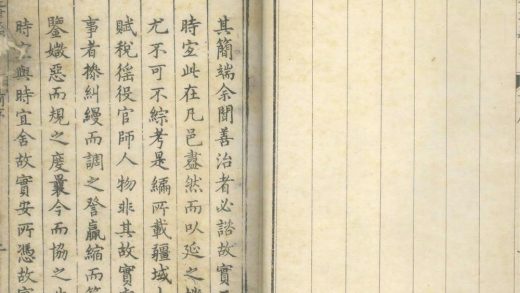 其簡端余聞善治者必諮故實
時宜此在凡邑盡然而以延之
尤不可不綜考是編所載疆域
賦稅徭役官師人物非其故實
事者糾縵而調之贏縮而
鑒媺惡而規之度曩今而協之
時宜與時宜舍故實安所憑故